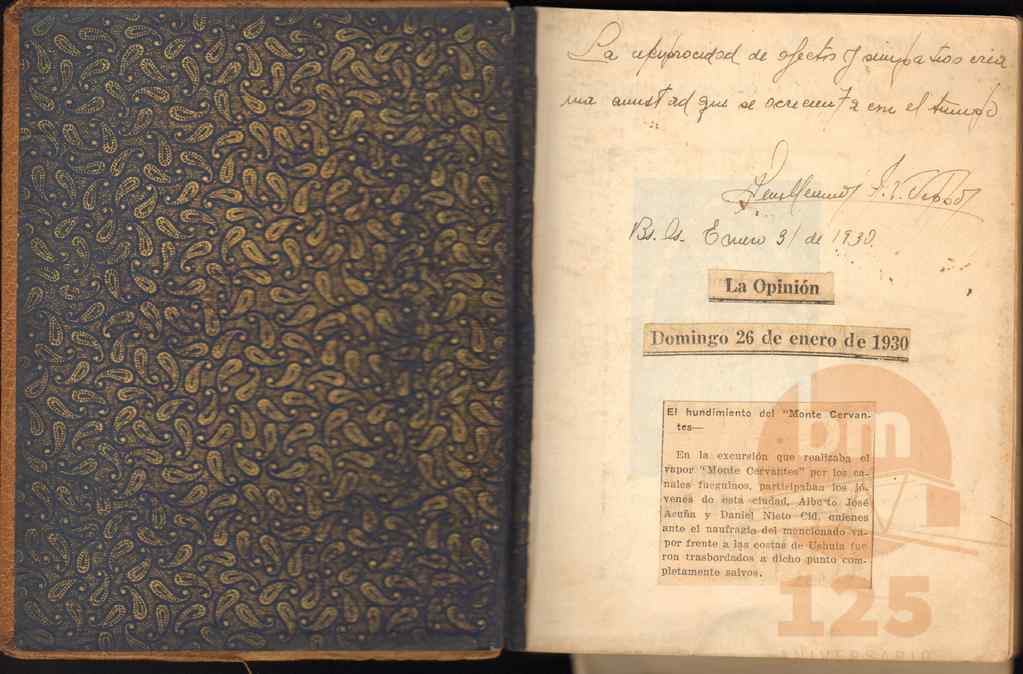 La reciprocidad de afectos y simpatias crea
una amistad que se acrecienta con el tiempo
Bs. As. Enero 31 de 1930.
La Opinión
Domingo 26 de enero de 1930
El hundimiento del "Monte Cervan-
tes—
En la excursión que realizaba el
vapor "Monte Cervantes" por los ca-
nales fueguinos, participaban los jó-
venes de esta ciudad, Alberto José
Acuña y Daniel Nieto Cid, quienes
ante el naufragio del mencionado va-
por frente a las costas de Ushuia fue
ron trasbordados a dicho punto com-
pletamente salvos.
bm
125
ANIVERSARIO